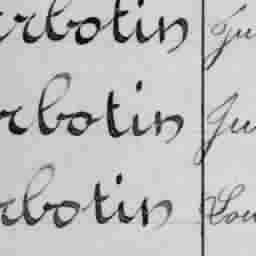 rbotin Ju
rbotin Ju
rbotin Lou